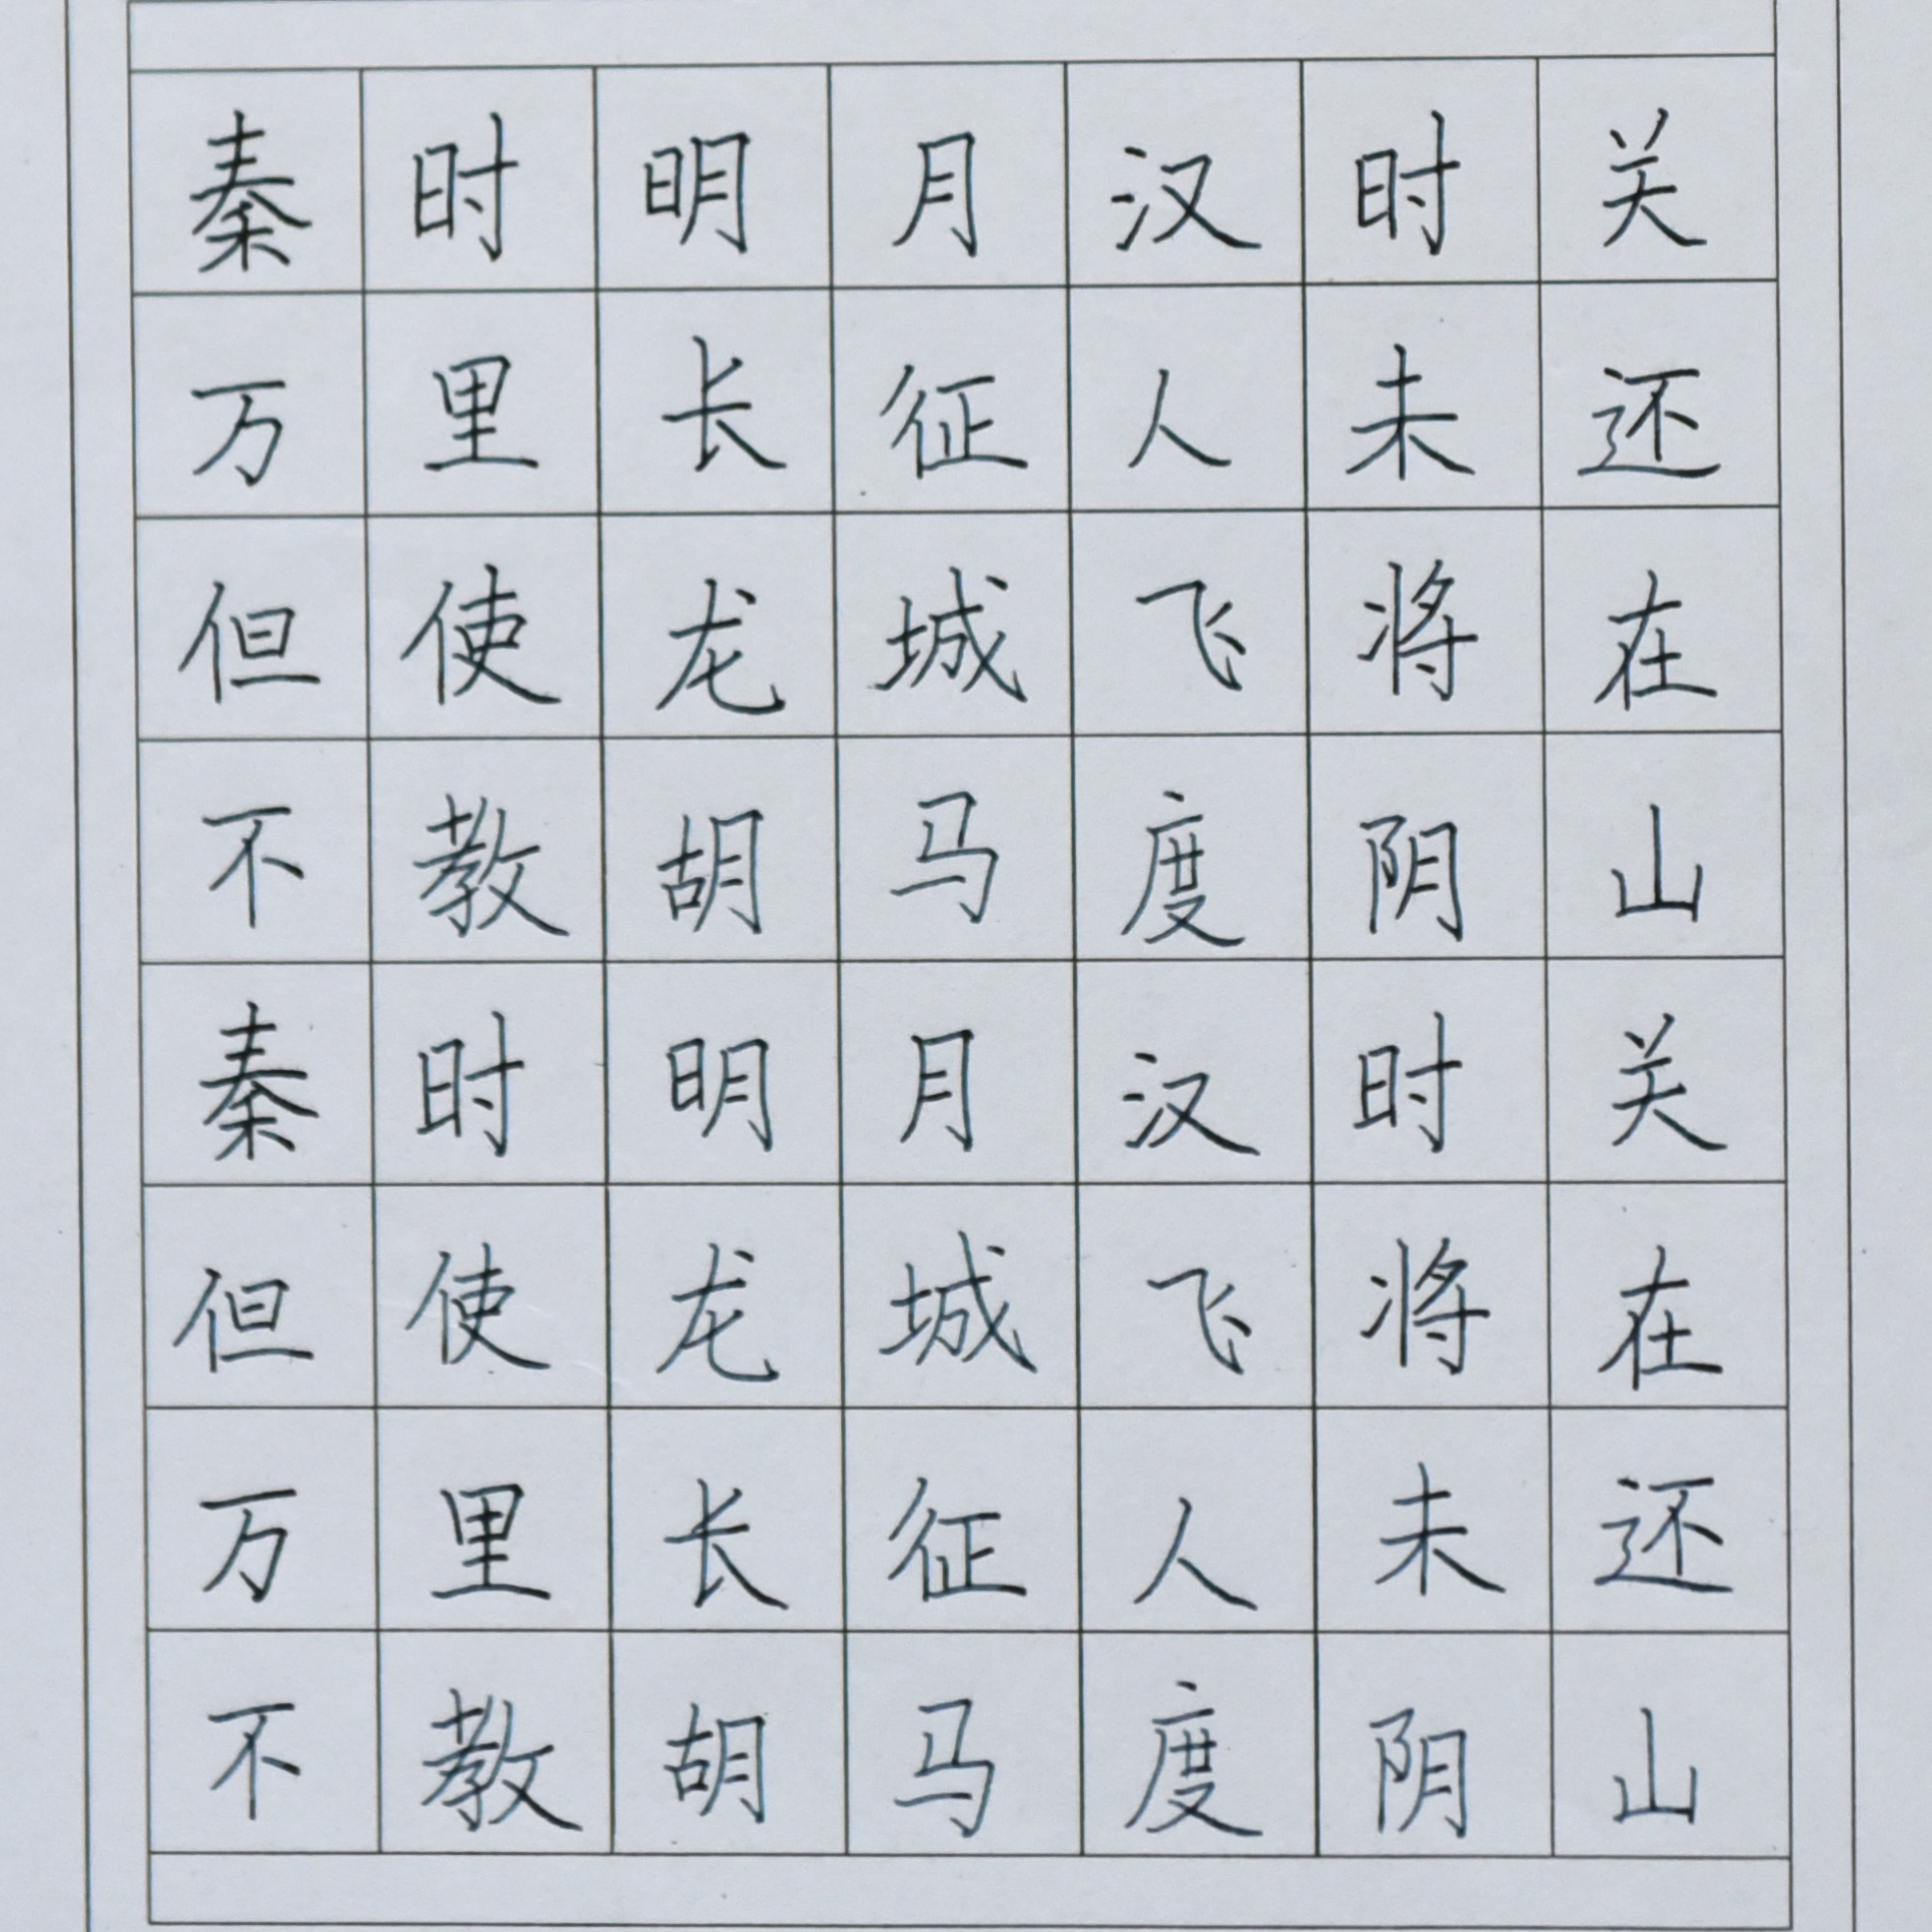 秦时明月汉时关
万里长征人未还
但使龙城飞将在
不教胡马度阴山
秦时明月汉时关
但使龙城飞将在
万里长征人未还
不教胡马度阴山